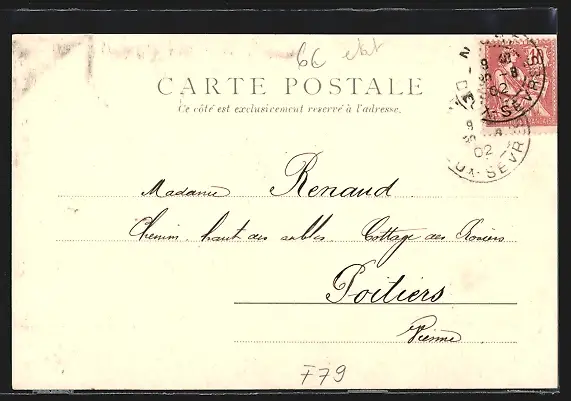 6C etat
CARTE POSTALE
Ce côté est exclusivement reservé à l'adresse.
9
8
02
X-SÈVRE
9
02
UX-SÈVR
Madame Renaud
Chemin haut des sables Cottage des Rosiers
Poitiers
Vienne
F79